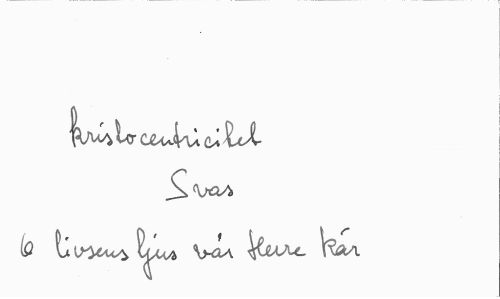 kristocentricitet
Svas
O livsens ljus vår Herre kär